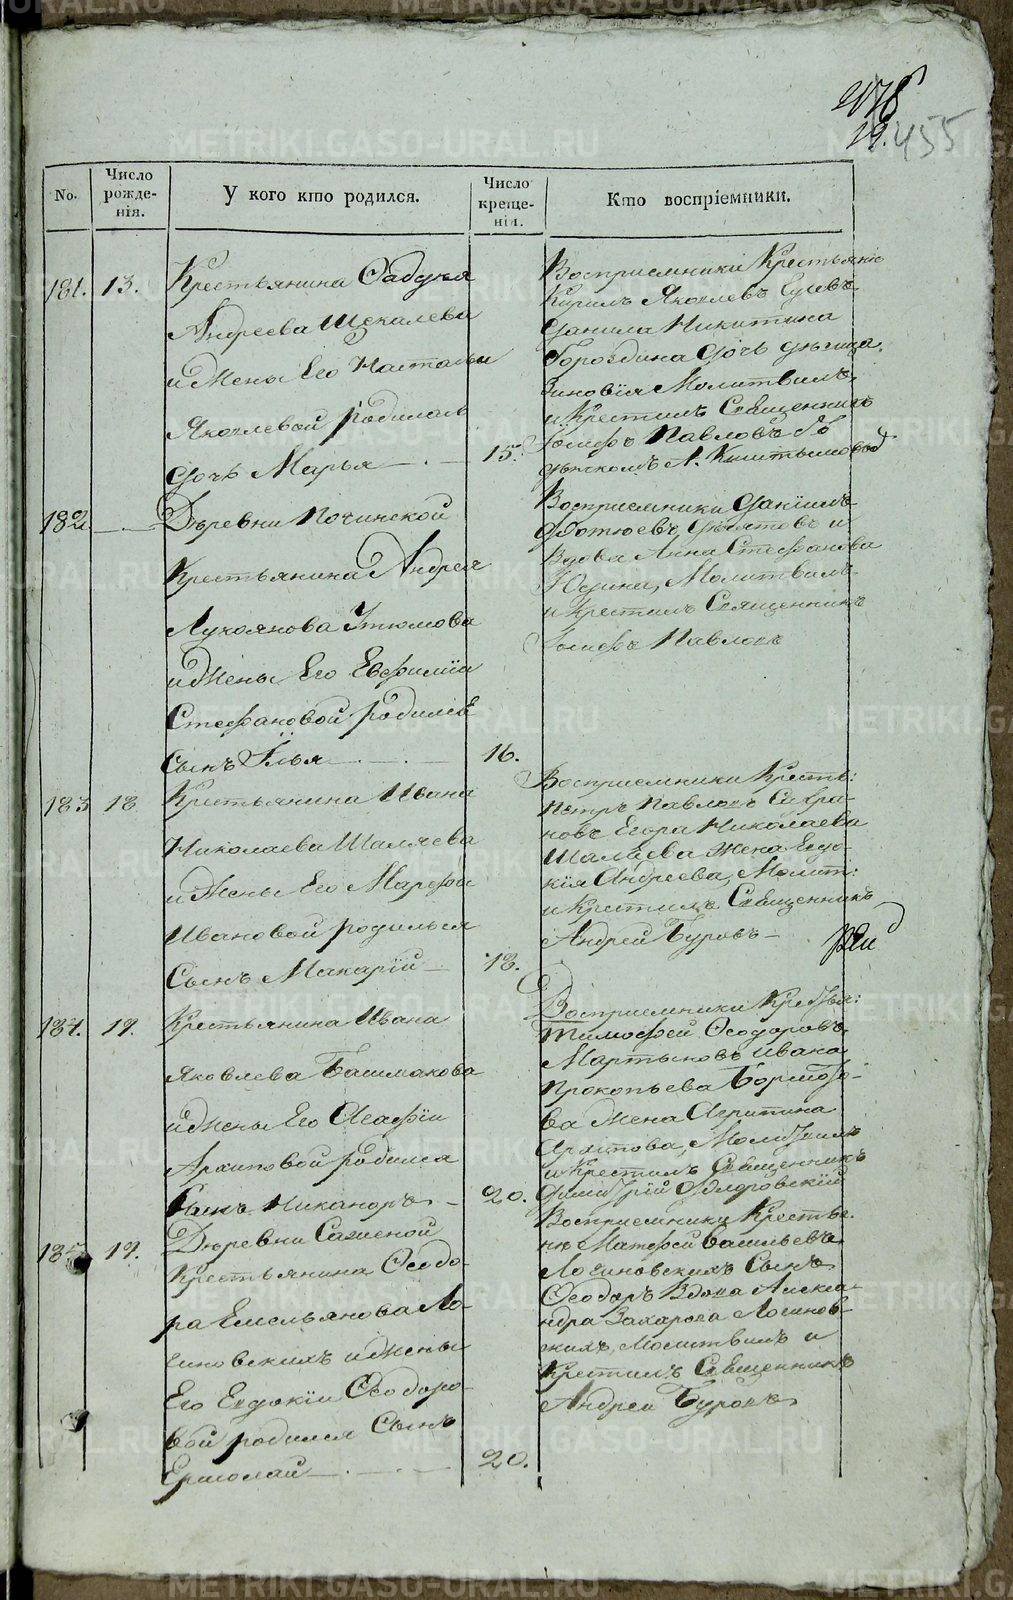 455
No.
Число рожде-нія.
У кого кто родился.
Число креще-ніи.
Кто воспріемники.
181. 13.
Крестьянина Садукя
Андреева Щекалева
и Жены Его Натальи
Яковлевой родилась
дочь Марья
15.
Восприемники Крестьяне
Кирилъ Яковлевъ
Данила Никитина
Гороздина дочь девица
Зиновїя Молитвилъ
и Крестилъ Священникъ
Іосифъ Павловъ
182
Деревни Починской
Крестьянина Андрея
Лукоянова Устюмова
и Жены Его Евфимїи
Стефановой родился
Сынъ Илья
16.
Восприемники Данїилъ
Фотиевъ и
Вдова Анна Стефанова
Юдина, Молитвилъ
и Крестилъ Священникъ
Іосифъ Павловъ
183 18
Крестьянина Ивана
Николаева Шаляева
и Жены Его Марфы
Ивановой родился
Сынъ Макарїй
18.
Восприемники Кресть:
Петръ Павловъ Сафра-
новъ Егора Николаева
Шаляева Жена Евдо-
кїя Андреева, Молит:
и Крестилъ Священникъ
Андрей Буровъ
184. 19.
Крестьянина Ивана
Яковлева Башмакова
и Жены Его Агафїи
Архиповой родился
Сынъ Никаноръ
20.
Восприемники Крестья:
Тимофей Ѳеодоровъ
Мартыновъ Ивана
Прокопьева Бормото-
ва Жена Агрипина
Архипова, Молитвилъ
и Крестилъ Священникъ
Димитрїй Флоровскїй
185 19.
Деревни Саженой
Крестьянина Ѳеодо-
ра Емельянова Ло-
гиновскихъ и Жены
Его Евдокїи Ѳеодоро-
вой родился Сынъ
Ермолай
20.
Восприемники Крестья-
не Матфей Васильевъ
Логиновскихъ Сынъ
Ѳеодоръ Вдова Алекса-
ндра Захарова Логинов-
скихъ, Молитвилъ и
Крестилъ Священникъ
Андрей Буровъ
METRIKI.GASO-URAL.RU